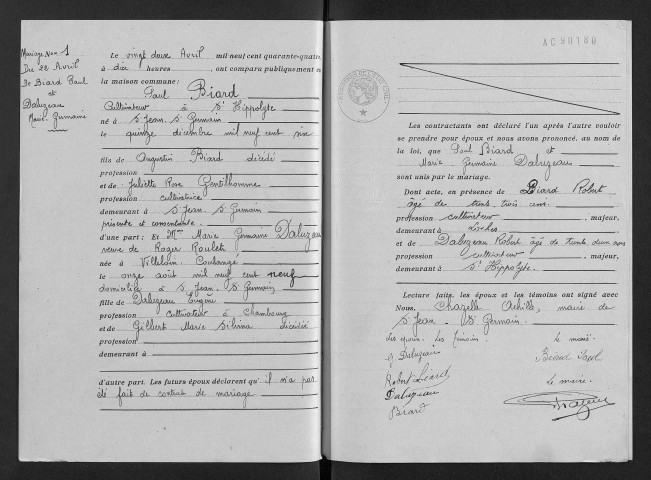 Mariage Non 1
Du 22 Avril
De Biard Paul
et
Dabuzeau
Marie Germaine
Le vingt deux Avril mil neuf cent quarante-quatre,
à dix heures, ont comparu publiquement en
la maison commune:
Paul Biard
Cultivateur à St Hippolyte
né à St Jean. St Germain
le quinze décembre mil neuf cent six
fils de Augustin Biard décédé
profession
et de Juliette Rose Gentilhomme
profession cultivatrice
demeurant à St Jean. St Germain
présente et consentante.
d'une part: Et Mme Marie Germaine Dabuzeau
veuve de Roger
née à Villeloin. Coulangé
le onze août mil neuf cent neuf
domiciliée à St Jean. St Germain
fille de Dabuzeau Eugène
profession cultivateur à Chambourg
et de Gilbert Marie Silvina décédée
profession
demeurant à
d'autre part. Les futurs époux déclarent qu'il n'a pas
été fait de contrat de mariage
AC90180
Les contractants ont déclaré l'un après l'autre vouloir
se prendre pour époux et nous avons prononcé, au nom de
la loi, que Paul Biard et
Marie Germaine Dabuzeau
sont unis par le mariage.
Dont acte, en présence de Biard Robert
âgé de trente trois ans.
profession cultivateur, majeur,
demeurant à Loches
et de Dabuzeau Robert âgé de trente deux ans
profession cultivateur, majeur,
demeurant à St Hippolyte.
Lecture faite, les époux et les témoins ont signé avec
Nous, Chazelle Achille, maire de
St Jean. St Germain.
Les époux. Les témoins. Le marié
G. Dabuzeau Biard Paul
Robert Biard Le maire.
Dabuzeau
Biard